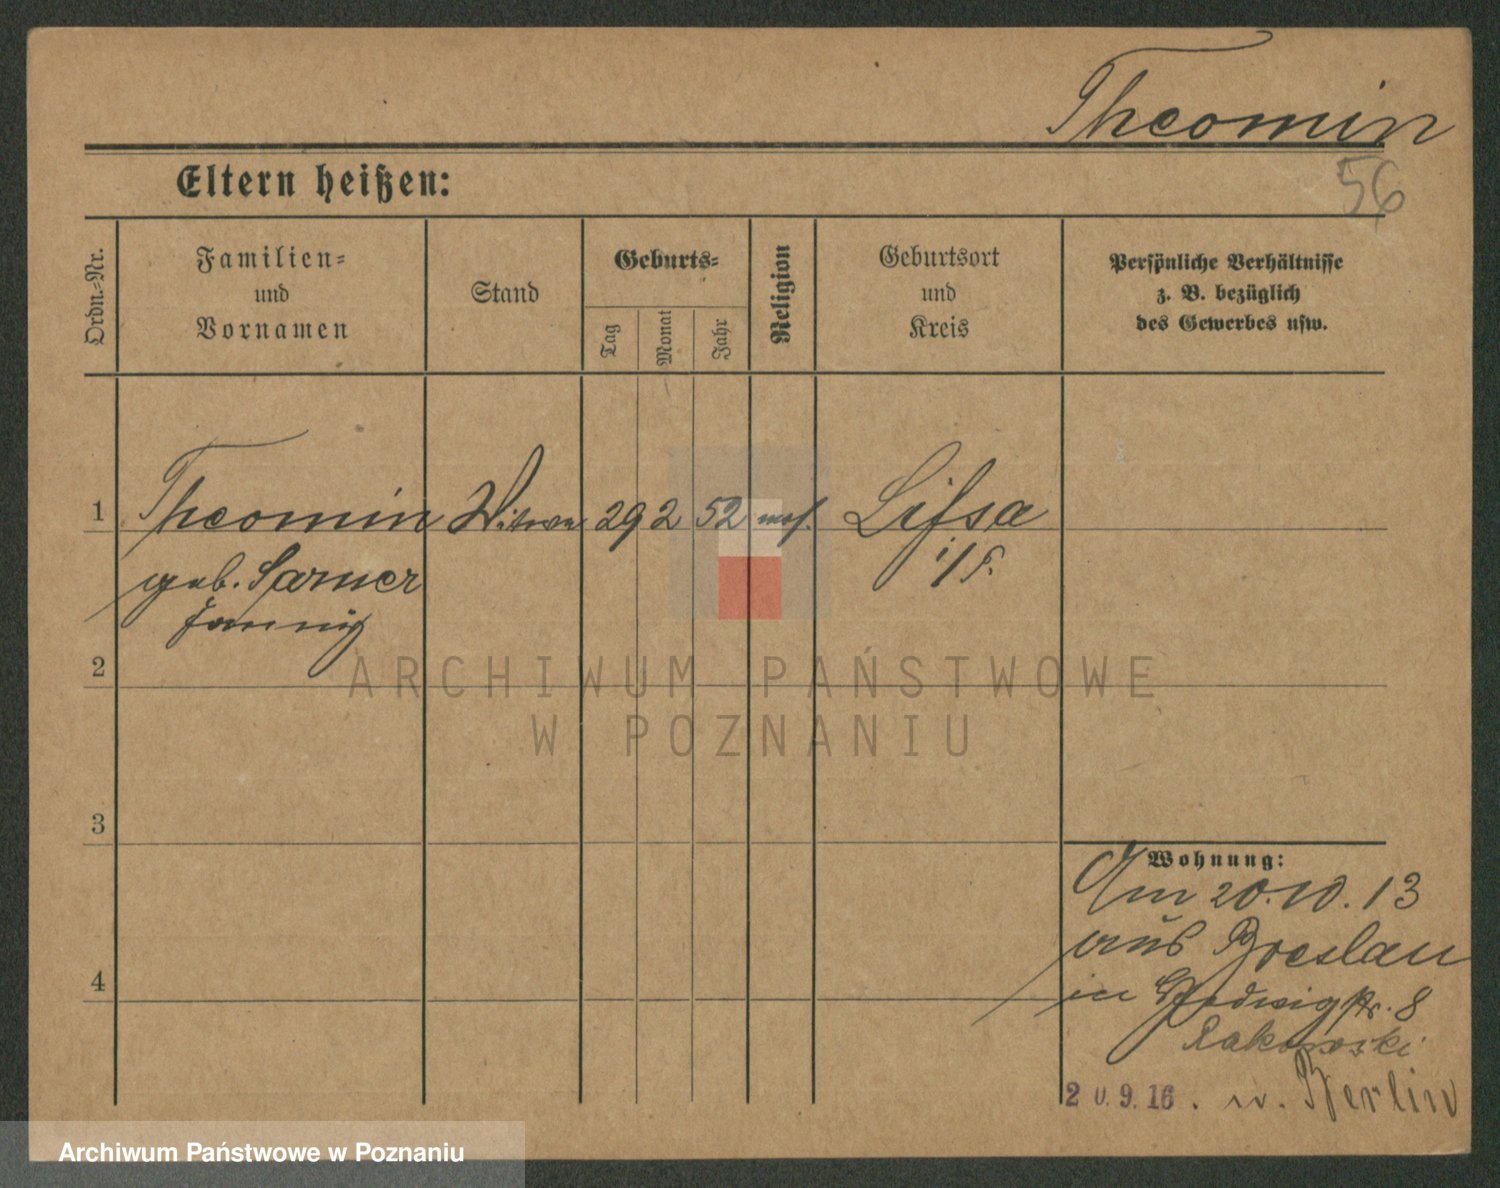 Theomin
56
Eltern heißen:
Ordn.-Nr.
Familien-
und
Vornamen
Stand
Geburts-
Tag
Monat
Jahr
Religion
Geburtsort
und
Kreis
Persönliche Verhältnisse
z. B. bezüglich
des Gewerbes usw.
1 Theomin Witwe 29 2 52 mos. Lissa
geb. Sarner i/P.
Fanny
2
3
4
Wohnung:
Am 20.10.13
aus Breslau
in Hedwigstr. 8
Rakowski
20.9.16. n. Berlin
ARCHIWUM PAŃSTWOWE
W POZNANIU
Archiwum Państwowe w Poznaniu